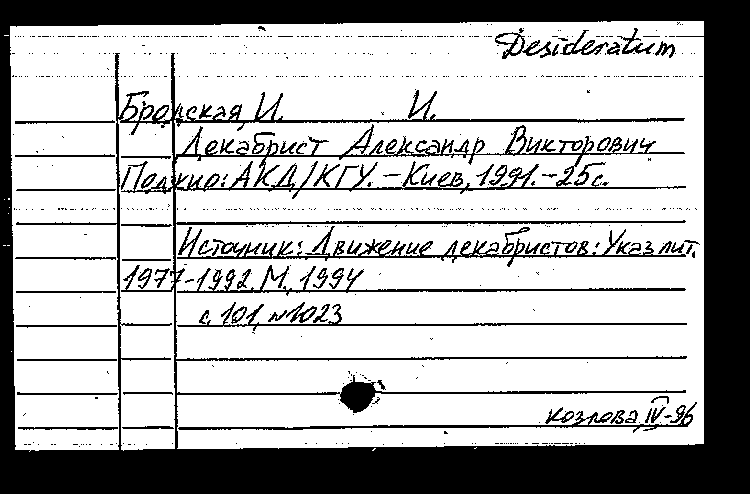 Desideratum
Бродская, И. И.
Декабрист Александр Викторович
Поджио: АКД/КГУ. – Киев, 1991. – 25 с.
Источник: Движение декабристов: Указ лит.
1977-1992. М., 1994
с. 101, №1023
Козлова, IV-96